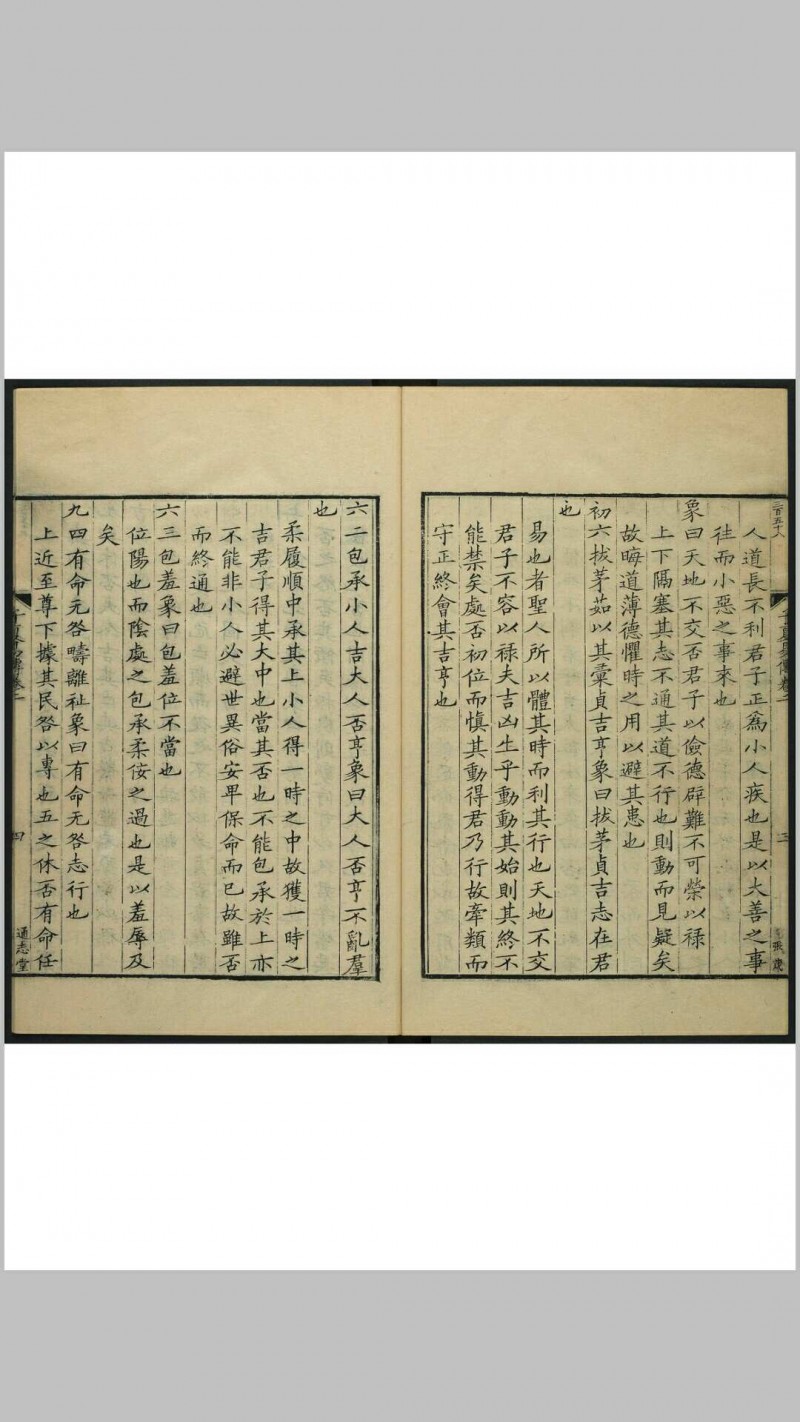 人道長不利君子正為小人疾也是以大善之事
往而小惡之事來也
象曰天地不交否君子以儉德辟難不可榮以祿
上下隔塞其志不通其道不行也則動而見疑矣
故晦道薄德懼時之用以避其患也
初六拔茅茹以其彙貞吉亨象曰拔茅貞吉志在君
也
易也者聖人所以體其時而利其行也天地不交
君子不容以祿夫吉凶生乎動動其始則其終不
能禁矣處否初位而慎其動得君乃行故牽類而
守正終會其吉亨也
六二包承小人吉大人否亨象曰大人否亨不亂羣
也
柔履順中承其上小人得一時之中故獲一時之
吉君子得其大中也當其否也不能包承於上亦
不能非小人必避世異俗安卑保命而已故雖否
而終通也
六三包羞象曰包羞位不當也
位陽也而陰處之包承柔佞之過也是以羞辱及
矣
九四有命无咎疇離祉象曰有命无咎志行也
上近至尊下據其民咎以專也五之休否有命任
四
通志堂